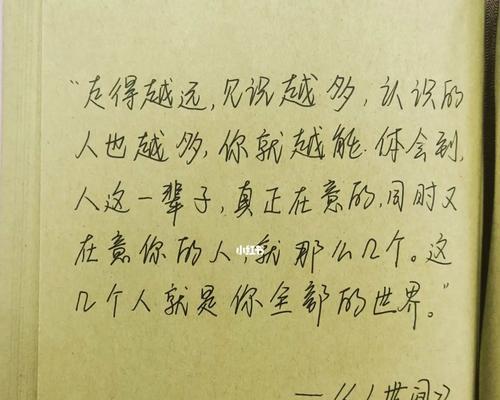 “走得越远,见识越多,认识的
人也越多,你就越能体会到,
人这一辈子,真正在意的,同时又
在意你的人,就那么几个。这
几个人就是你全部的世界。”
小红书